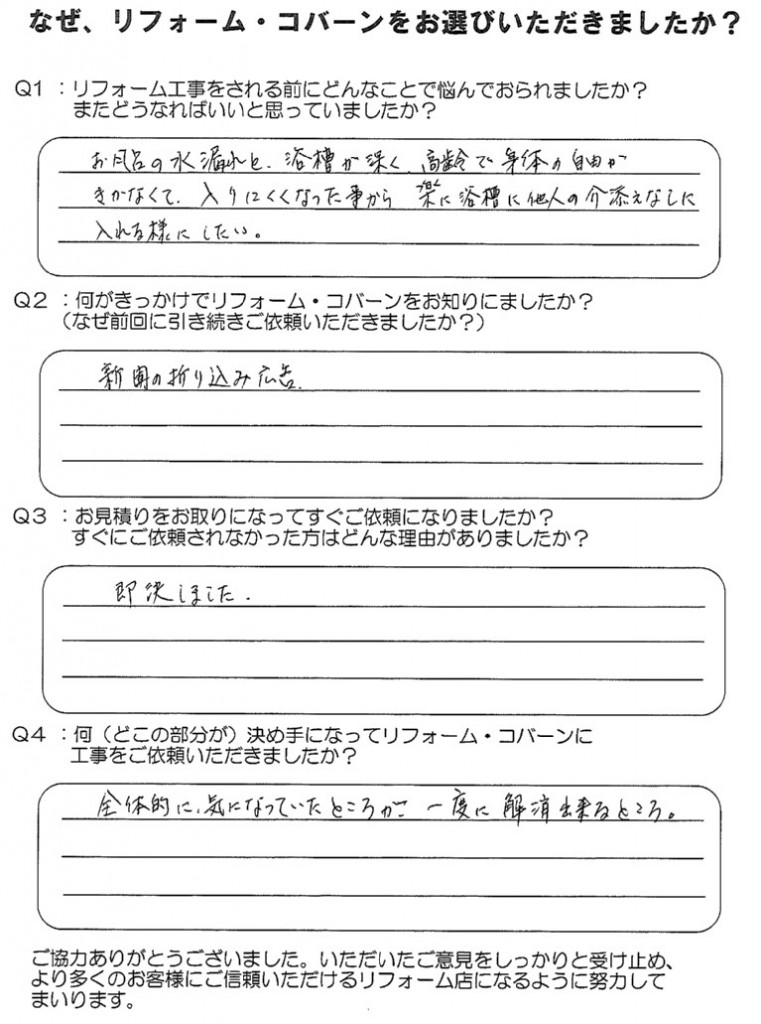 なぜ、リフォーム・コバーンをお選びいただきましたか？
Q1 ：リフォーム工事をされる前にどんなことで悩んでおられましたか？
またどうなればいいと思っていましたか？
お風呂の水漏れと、浴槽が深く、高齢で身体の自由が
きかなくて、入りにくくなった事から 楽に浴槽に他人の介添えなしに
入れる様にしたい。
Q2 ：何がきっかけでリフォーム・コバーンをお知りにましたか？
（なぜ前回に引き続きご依頼いただきましたか？）
新聞の折り込み広告.
Q3 ：お見積りをお取りになってすぐご依頼になりましたか？
すぐにご依頼されなかった方はどんな理由がありましたか？
即決しました.
Q4 ：何（どこの部分が）決め手になってリフォーム・コバーンに
工事をご依頼いただきましたか？
全体的に、気になっていたところが 一度に 解消出来るところ。
ご協力ありがとうございました。いただいたご意見をしっかりと受け止め、
より多くのお客様にご信頼いただけるリフォーム店になるように努力して
まいります。